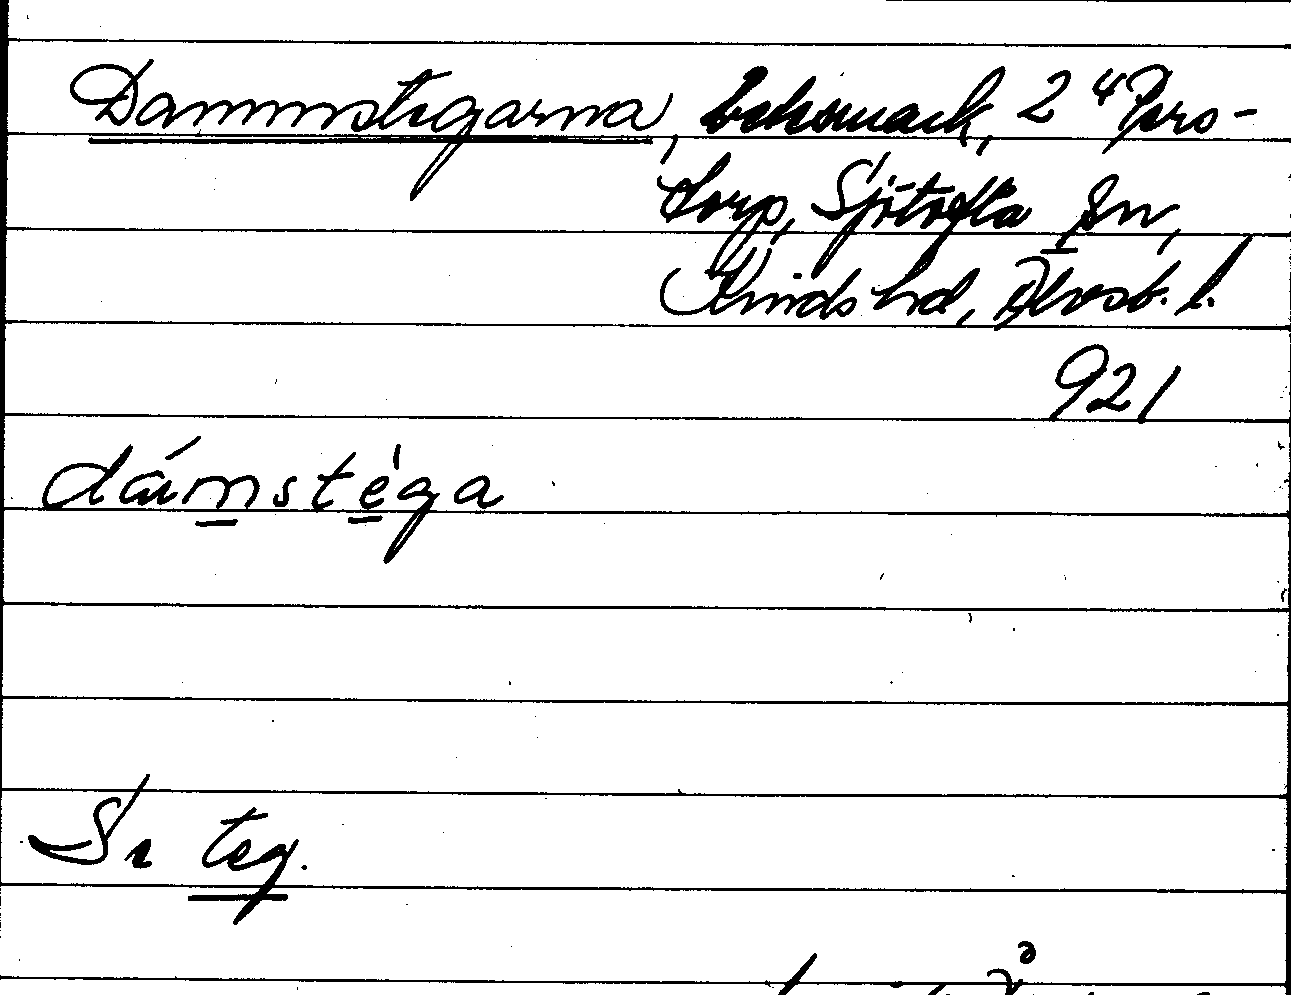 Dammstegarna, betesmark, 2 4 Pers-
torp, Sjötofta sn,
Kinds hd, Älvsb. l.
921
dámstèga
Se teg.